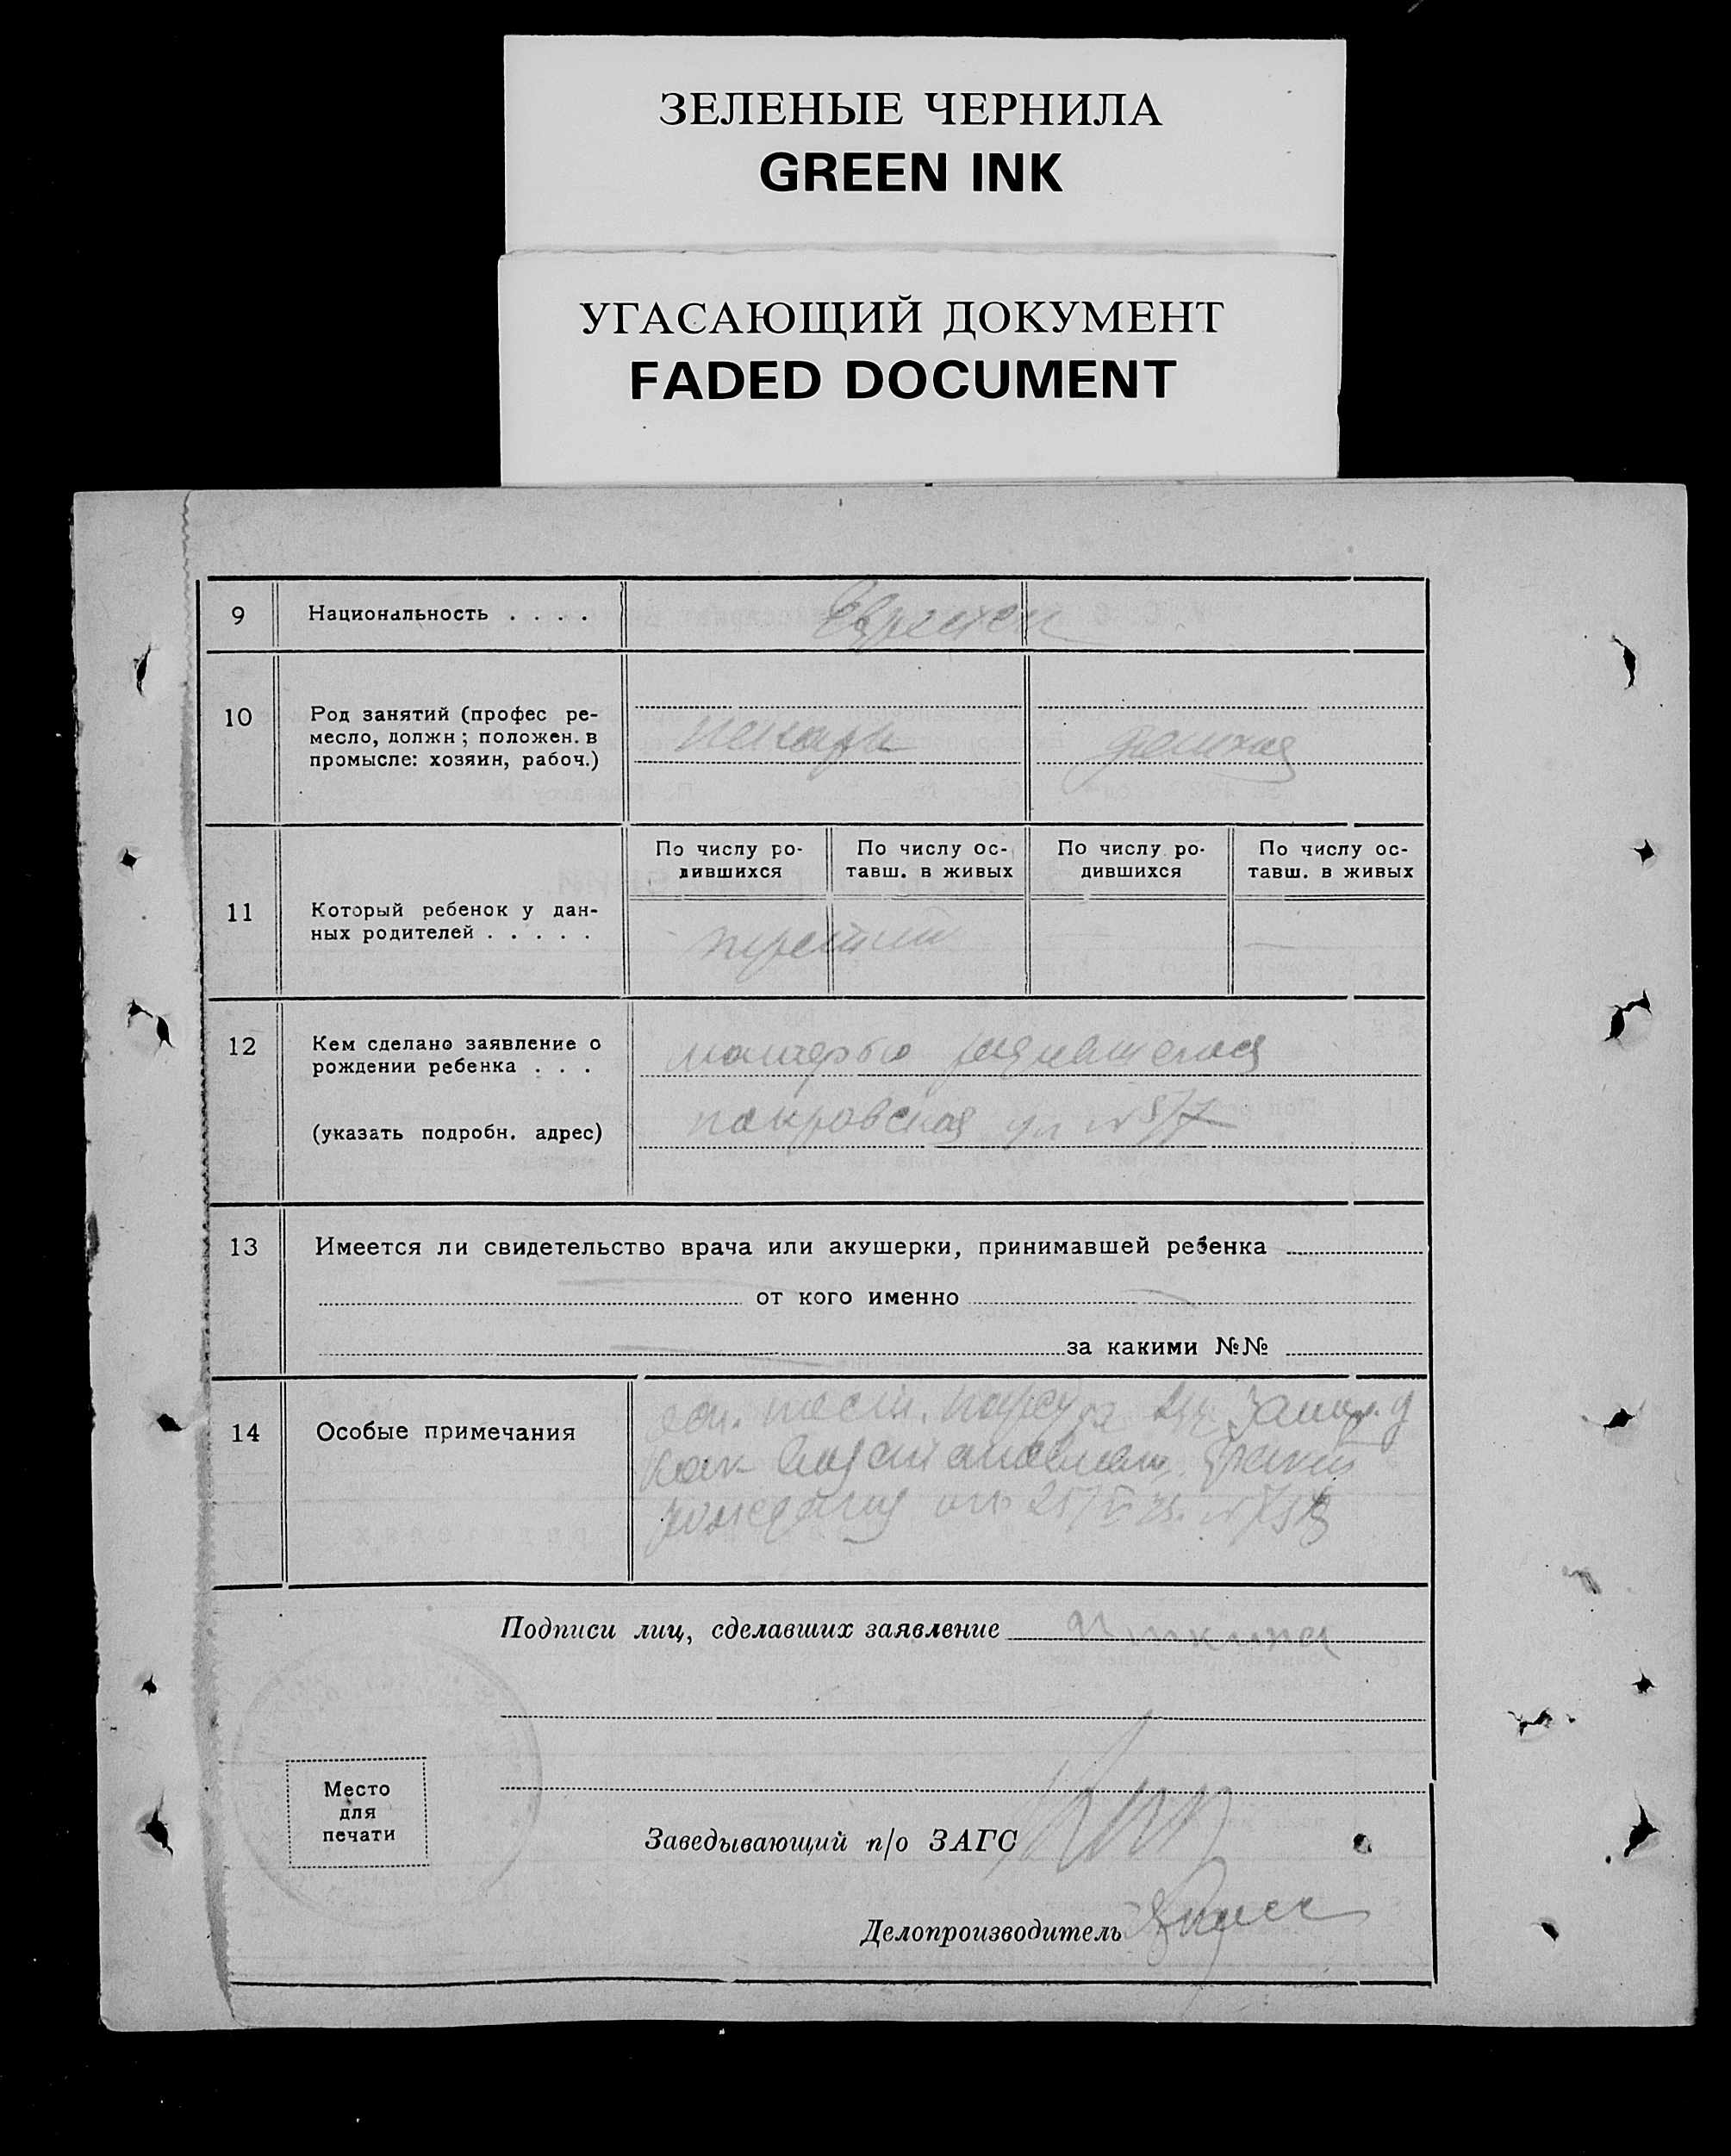 ЗЕЛЕНЫЕ ЧЕРНИЛА
GREEN INK
УГАСАЮЩИЙ ДОКУМЕНТ
FADED DOCUMENT
9 Национальность . . . .
10 Род занятий (профес ре-
месло, должн; положен. в
промысле: хозяин, рабоч.)
пекарь
По числу ро-
дившихся
По числу ос-
тавш. в живых
По числу ро-
дившихся
По числу ос-
тавш. в живых
11 Который ребенок у дан-
ных родителей . . . . .
третий
12 Кем сделано заявление о
рождении ребенка . . .
матерью
(указать подробн. адрес)
покровская ул
13 Имеется ли свидетельство врача или акушерки, принимавшей ребенка
от кого именно
за какими №№
14 Особые примечания
как
рождения от
Подписи лиц, сделавших заявление
Место
для
печати
Заведывающий п/о ЗАГС
Делопроизводитель